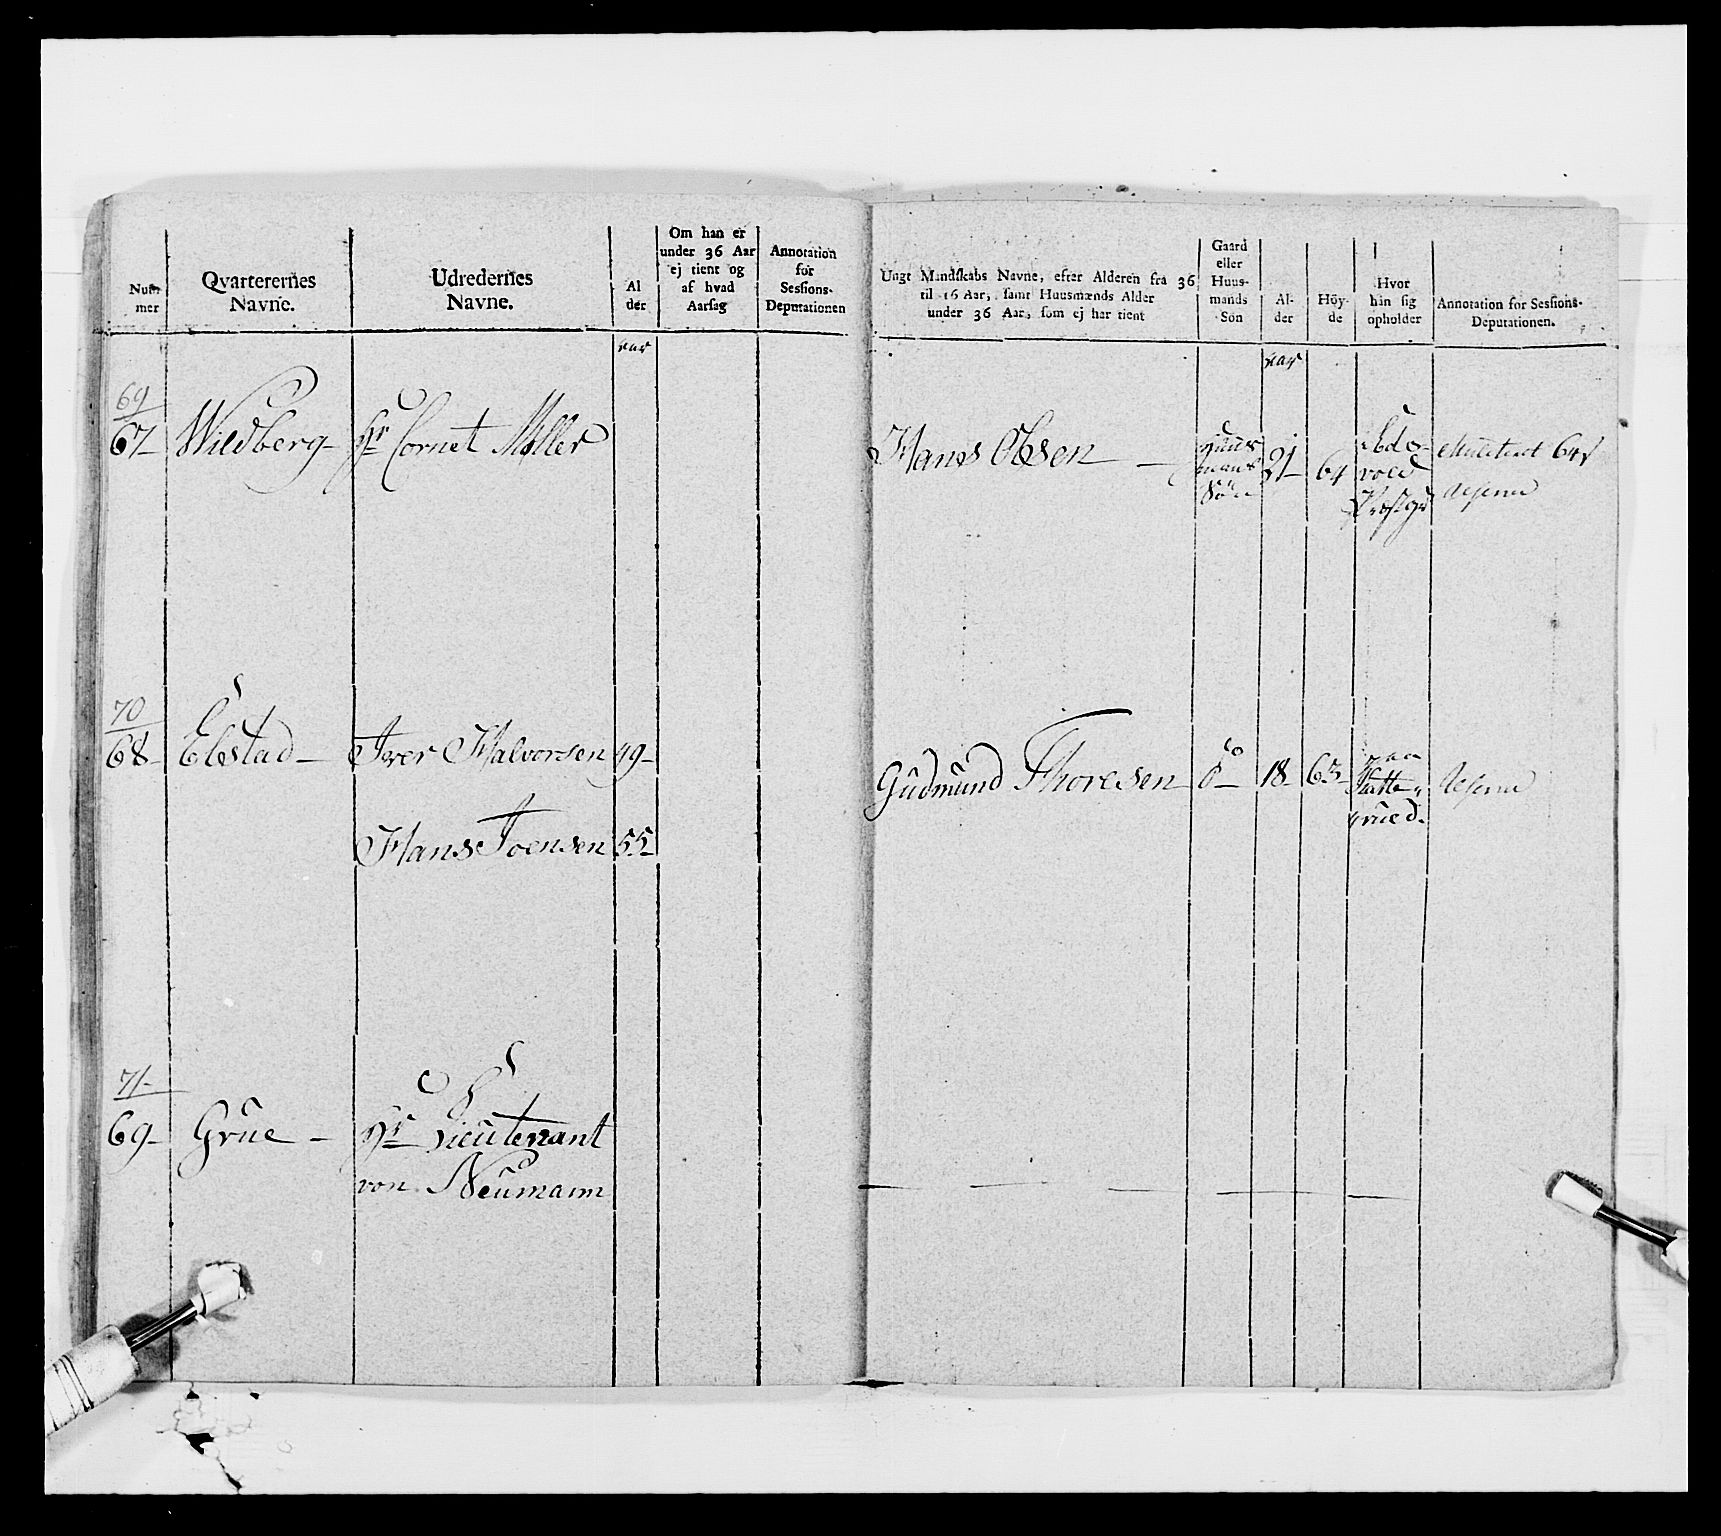 Num
mer
Qvarterernes
Navne.
Udredernes
Navne.
Al
der
Om han er
under 36 Aar
ej tient og
af hvad
Aarsag
Annotation
for
Sessions-
Deputationen
aar
69
67- Wildberg- Hr Cornet Møller
70
68- Elstad- Iver Halvorsen 49-
Hans Joensen 55-
71-
69- Grue- Hr Lieutenant
von Neumann
Ungt Mandskabs Navne, efter Alderen fra 36
til 16 Aar, samt Huusmænds Alder
under 36 Aar, som ej har tient
Gaard
eller
Huus-
mands
Søn
Al-
der
Höy-
de
Hvor
han sig
opholder
Annotation for Sessions-
Deputationen.
aar
Hans Olsen - Huus
mans
Søn 21- 64
vold
Præstgd
64
Reserve
Gudmund Thoresen do- 18- 63- paa
Reserve